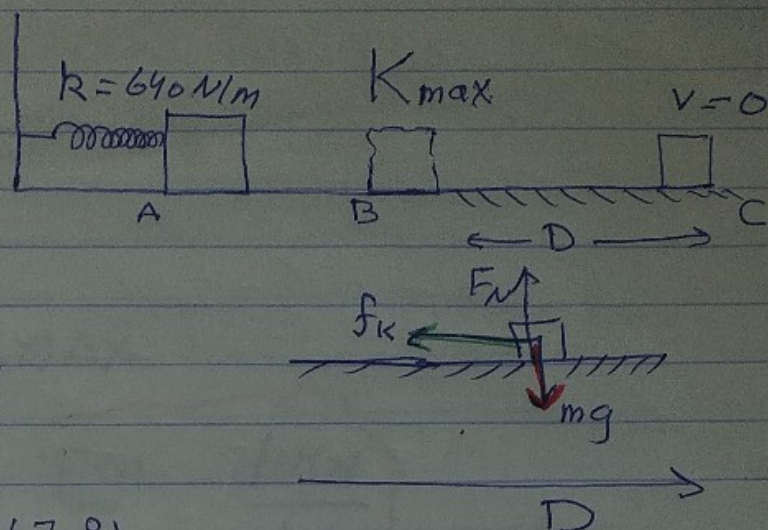 k = 640 N/m
Kmax
v = 0
A
B
C
D
FN
fK
mg
D